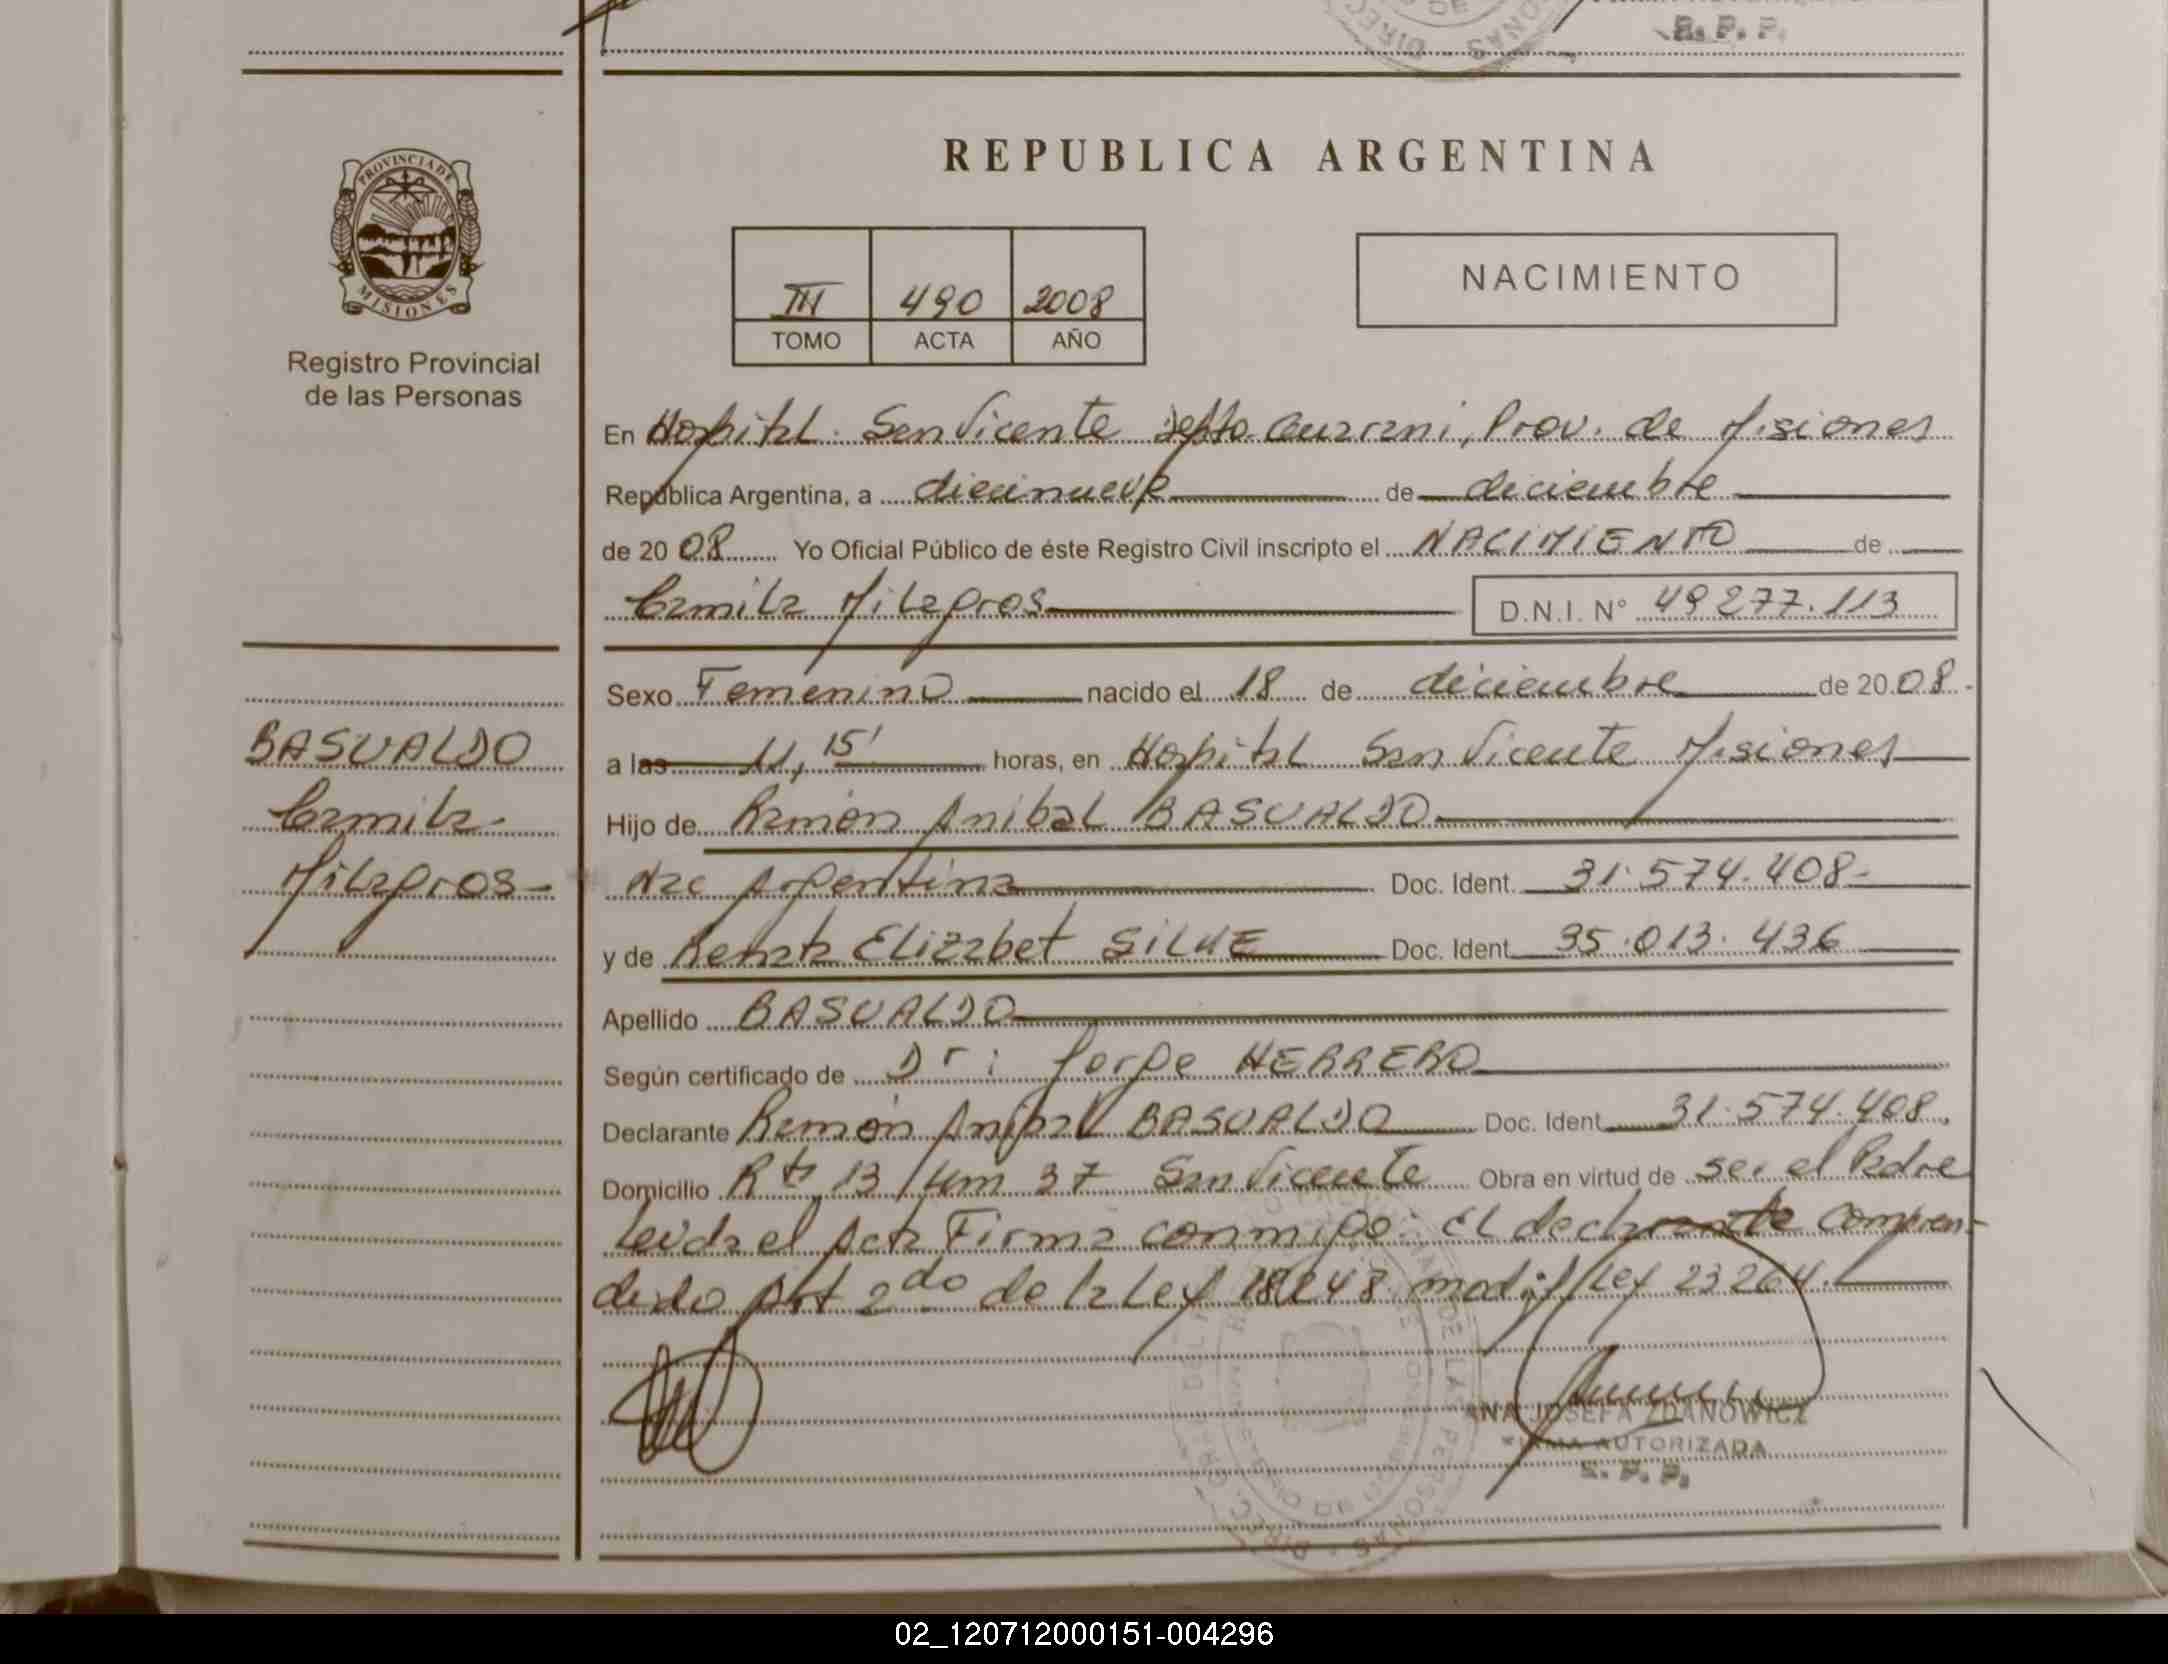 R. P. P.
PROVINCIA DE
MISIONES
Registro Provincial
de las Personas
REPUBLICA ARGENTINA
NACIMIENTO
III 490 2008
TOMO ACTA AÑO
En Hospital San Vicente Depto Guarani, Prov. de Misiones
República Argentina, a diecinueve de diciembre
de 20 08 Yo Oficial Público de éste Registro Civil inscripto el NACIMIENTO de
Camila Milagros D.N.I. N° 49277.113
Sexo Femenino nacido el 18 de diciembre de 20 08.-
a las 11,15' horas, en Hospital San Vicente Misiones
Hijo de Ramón Anibal BASUALDO
Nac Argentina Doc. Ident. 31.574.408-
y de Renata Elizabet Doc. Ident. 35.013.436
Apellido BASUALDO
Según certificado de Dr: Jorge HERRERO
Declarante Ramón Anibal BASUALDO Doc. Ident. 31.574.408.
Domicilio Rta 13 Km 37 San Vicente Obra en virtud de ser el Padre
Leida el Acta Firma conmigo: El declarante Compren-
dido Art 2do de la Ley 18248 modif Ley 23264.
BASUALDO
Camila
Milagros-
ANA JOSEFA ZDANOWICZ
FIRMA AUTORIZADA
R. P. P.
02_120712000151-004296